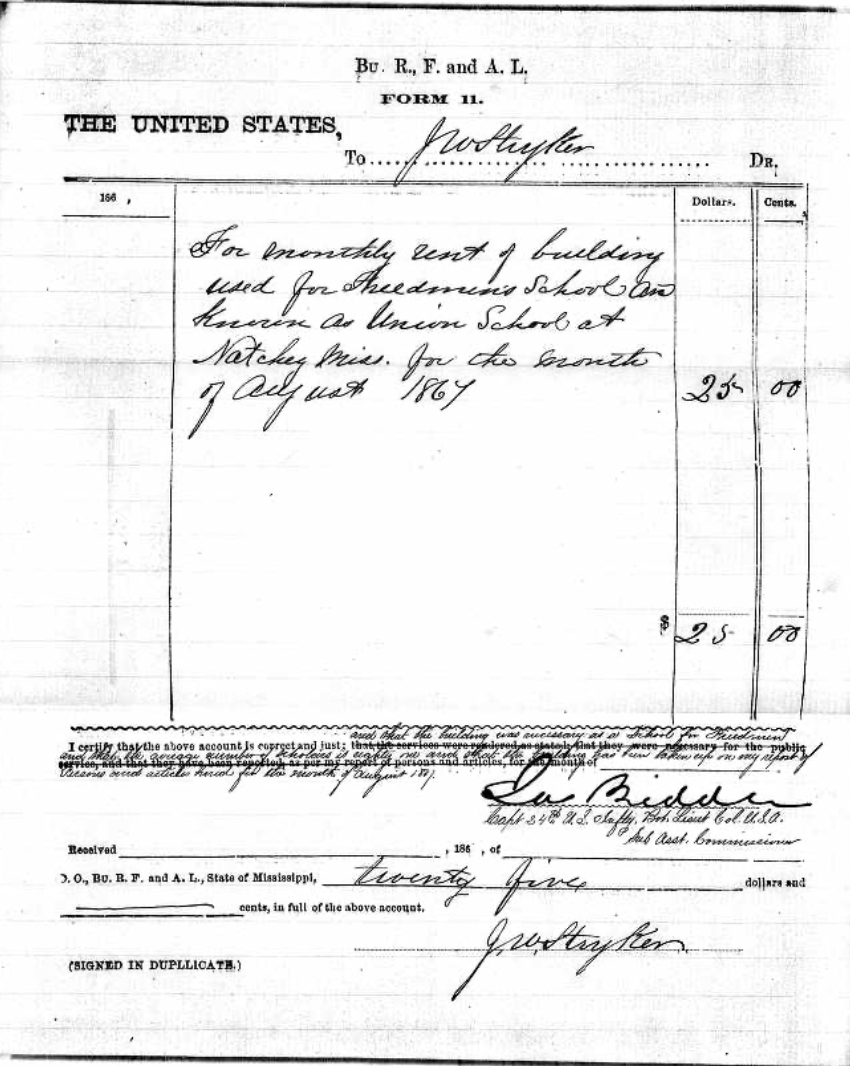 Bu. R., F. and A. L.
FORM 11.
THE UNITED STATES,
To J W Stryker DR.
186 ,
Dollars. Cents.
For monthly rent of building
used for Freedmens School an
known as Union School at
Natchez Miss. for the month
of August 1867 25 00
$ 25 00
and that the building was necessary as a School for Freedmen
I certify that the above account is correct and just; that the services were rendered as stated; that they were necessary for the public
and that the average number of scholars is eighty one and that the building has been taken up on my report of
service, and that they have been reported, as per my report of persons and articles, for the month of
Persons and articles hired for the month of August 1867.
Capt 34th U.S. Infty. Bvt Lieut Col. U.S.A.
Sub Asst. Commissioner
Received , 186 , of
D. O., Bu. R. F. and A. L., State of Mississippi, twenty five dollars and
cents, in full of the above account.
J. W. Stryker
(SIGNED IN DUPLLICATE.)